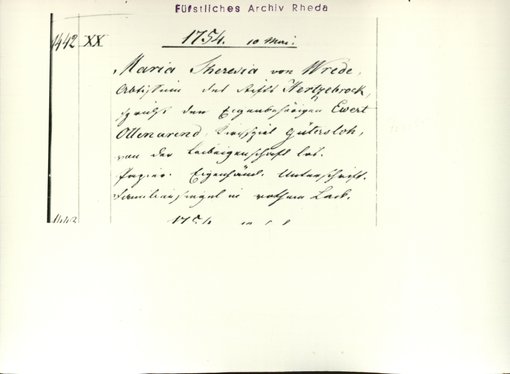 Fürstliches Archiv Rheda
1442 XX 1754. 10 Mai.
Maria Theresia von Wrede,
Äbtissin des Stifts Hertzebrock,
spricht den Eigenbehörigen Ewert
Ottenarend Kirchspiel Gütersloh,
von der Leibeigenschaft los.
Papier. Eigenhänd. Unterschrift.
Familiensiegel in rothem Lack.
1443 1754